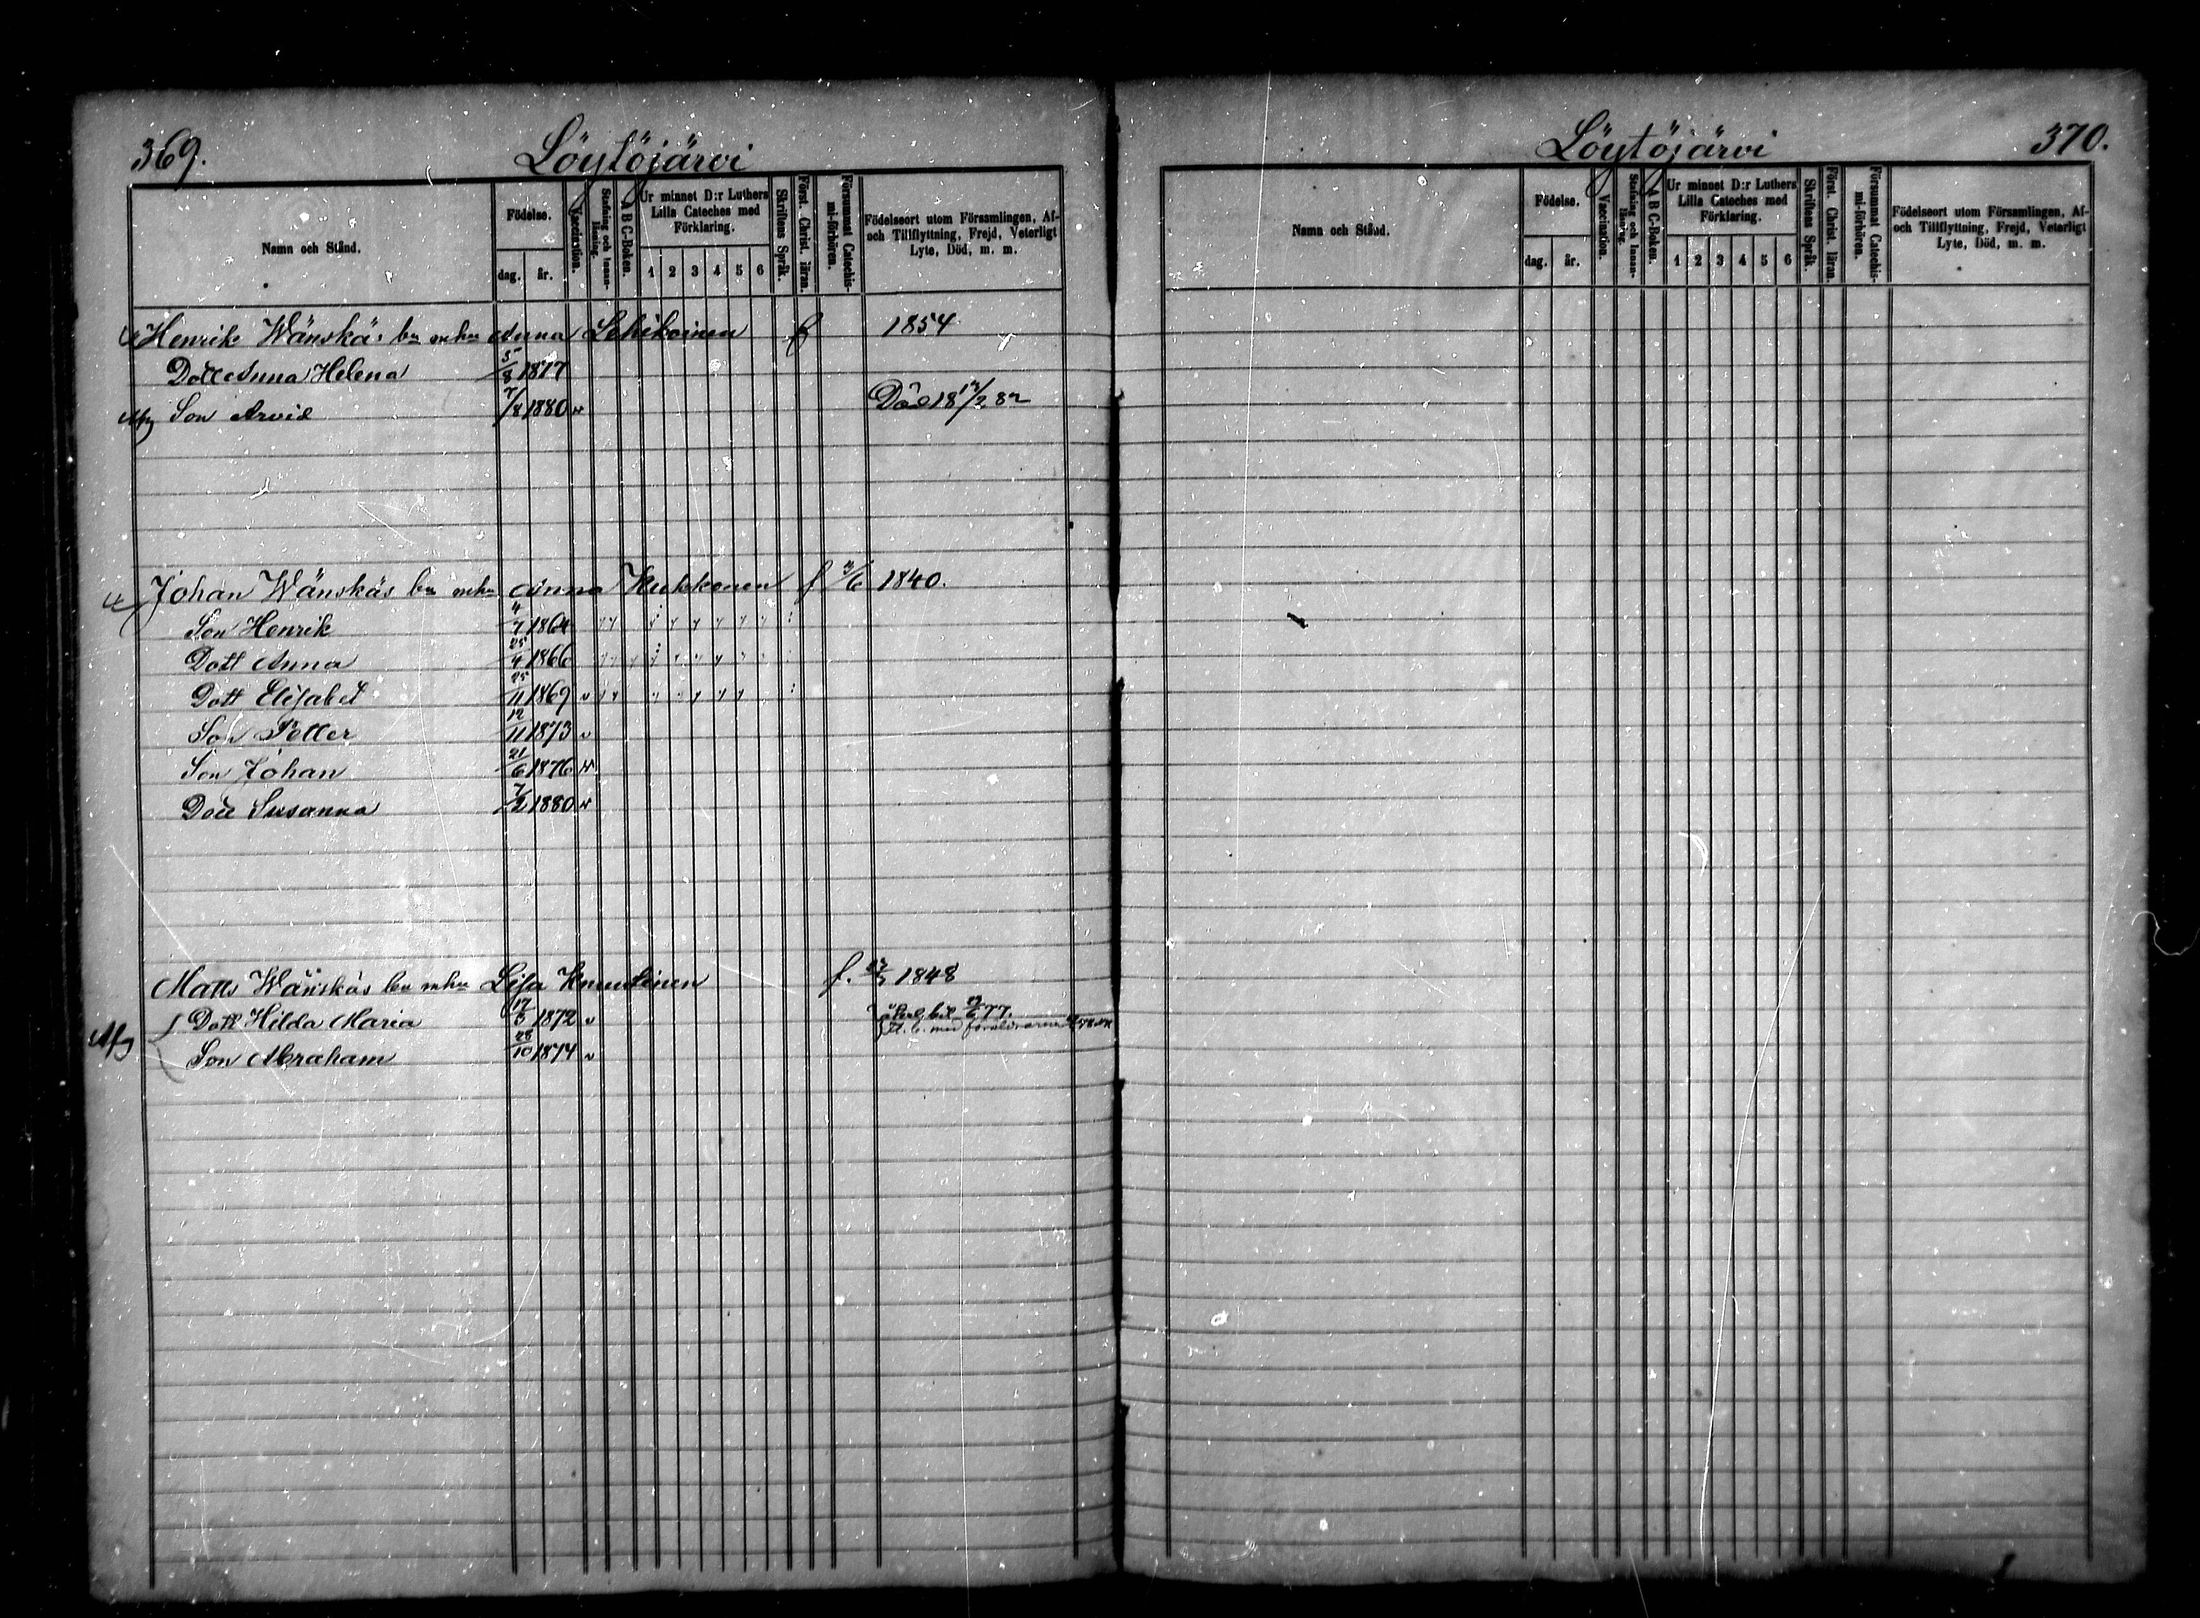 369.
Löytöjärvi
Namn och Stånd.
Födelse.
dag.
år.
Vaccination.
Stafning och Innan-Läsning.
A B C-Boken.
Ur minnet D:r Luthers Lilla Cateches med Förklaring.
1 2 3 4 5 6
Skriftens Språk.
Först. Christ. läran.
Försummat Catechismi-förhören.
Födelseort utom Församlingen, Af-
och Tillflyttning, Frejd, Veterligt
Lyte, Död, m. m.
Henrik Wänskäs bn mhu Anna Lehikoinen f 1854
Dott Anna Helena 5/8 1877
Son Arvid 7/8 1880 v Död 18 12/2 82
Johan Wänskäs bn mhu Anna Kukkonen f /6 1840.
Son Henrik 4/7 1864
Dott Anna 25/4 1866
Dott Elisabet 25/11 1869 v
Son Petter 12/11 1873 v
Son Johan 21/6 1876 v
Dott Susanna 7/2 1880 v
Matts Wänskäs bn mhu Lisa Knuutinen f. 1848
Afg
Dott Hilda Maria 17/5 1872 v 77.
Son Abraham 28/10 1874 v
Löytöjärvi
370.
Namn och Stånd.
Födelse.
dag.
år.
Vaccination.
Stafning och Innan-Läsning.
A B C-Boken.
Ur minnet D:r Luthers Lilla Cateches med Förklaring.
1 2 3 4 5 6
Skriftens Språk.
Först. Christ. läran.
Försummat Catechismi-förhören.
Födelseort utom Församlingen, Af-
och Tillflyttning, Frejd, Veterligt
Lyte, Död, m. m.